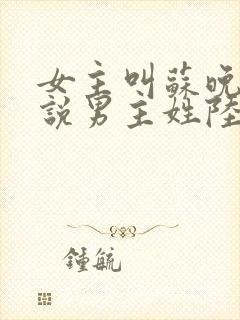 女主叫蘇晚
說男主姓陸
鍾毓